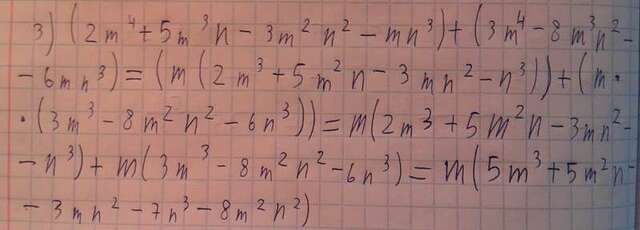 3) (2m⁴+5m³n-3m²n²-mn³)+(3m⁴-8m³n²-
-6mn³)=(m(2m³+5m²n-3mn²-n³))+(m·
·(3m³-8m²n²-6n³))=m(2m3+5m²n-3mn²-
-n³)+m(3m³-8m²n²-6n³)=m(5m³+5m²n-
-3mn²-7n³-8m²n²)